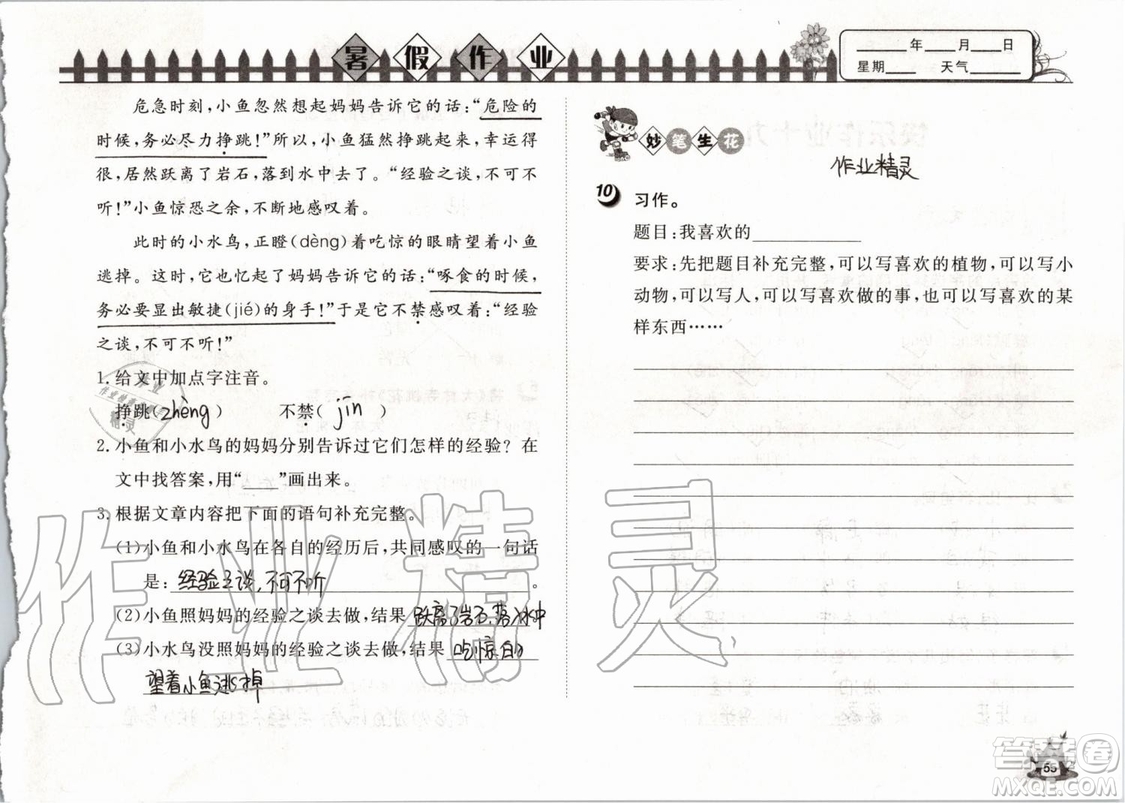 暑假作业
____年____月____日
星期____ 天气____
危急时刻，小鱼忽然想起妈妈告诉它的话：“危险的
时候，务必尽力挣跳！”所以，小鱼猛然挣跳起来，幸运得
很，居然跃离了岩石，落到水中去了。“经验之谈，不可不
听！”小鱼惊恐之余，不断地感叹着。
此时的小水鸟，正瞪（dèng）着吃惊的眼睛望着小鱼
逃掉。这时，它也忆起了妈妈告诉它的话：“啄食的时候，
务必要显出敏捷（jié）的身手！”于是它不禁感叹：“经验
之谈，不可不听！”
1. 给文中加点字注音。
挣跳（zhèng） 不禁（jīn）
2. 小鱼和小水鸟的妈妈分别告诉过它们怎样的经验？在
文中找答案，用“____”画出来。
3. 根据文章内容把下面的语句补充完整。
(1) 小鱼和小水鸟在各自的经历后，共同感叹的一句话
是：经验之谈，不可不听。
(2) 小鱼照妈妈的经验之谈去做，结果 跃离了岩石，落入水中
(3) 小水鸟没照妈妈的经验之谈去做，结果 吃惊的
望着小鱼逃掉
妙笔生花
作业精灵
10 习作。
题目：我喜欢的__________
要求：先把题目补充完整，可以写喜欢的植物，可以写小
动物，可以写人，可以写喜欢做的事，也可以写喜欢的某
样东西……
作业精灵
55
答案圈
MXQE.COM